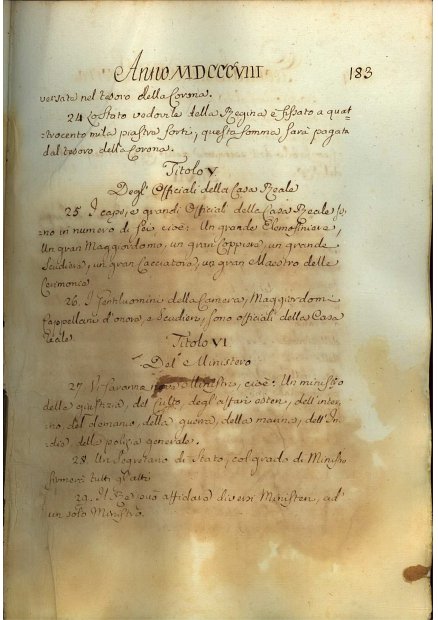 Anno MDCCCVIII 183
versate nel tesoro della Corona.
24. Lo Stato vedovile della Regina è fissato a quat-
trocento mila piastre forti, questa somma sarà pagata
dal tesoro della Corona.
Titolo V
Degl' Officiali della Casa Reale
25. I capi, e grandi Officiali della Casa Reale so-
no in numero di sei cioè: Un grande Elemosiniere,
Un gran Maggiordomo, un gran Coppiere, un grande
Scudiere, un gran Cacciatore, un gran Maestro delle
Cerimonie
26. I Gentiluomini della Camera, Maggiordomi
Cappellani d'onore, e Scudieri, sono officiali della Casa
Reale.
Titolo VI
Del Ministero
27. Vi saranno Ministri, cioè: Un ministro
della giustizia, del culto, degl'affari esteri, dell'inter-
no, del demanio, della guerra, della marina, dell'In-
die, della polizia generale.
28. Un Segretario di Stato, col grado di Ministro
firmerà tutti gl'atti
29. Il Re può affidare diversi Ministeri, ad
un solo Ministro.